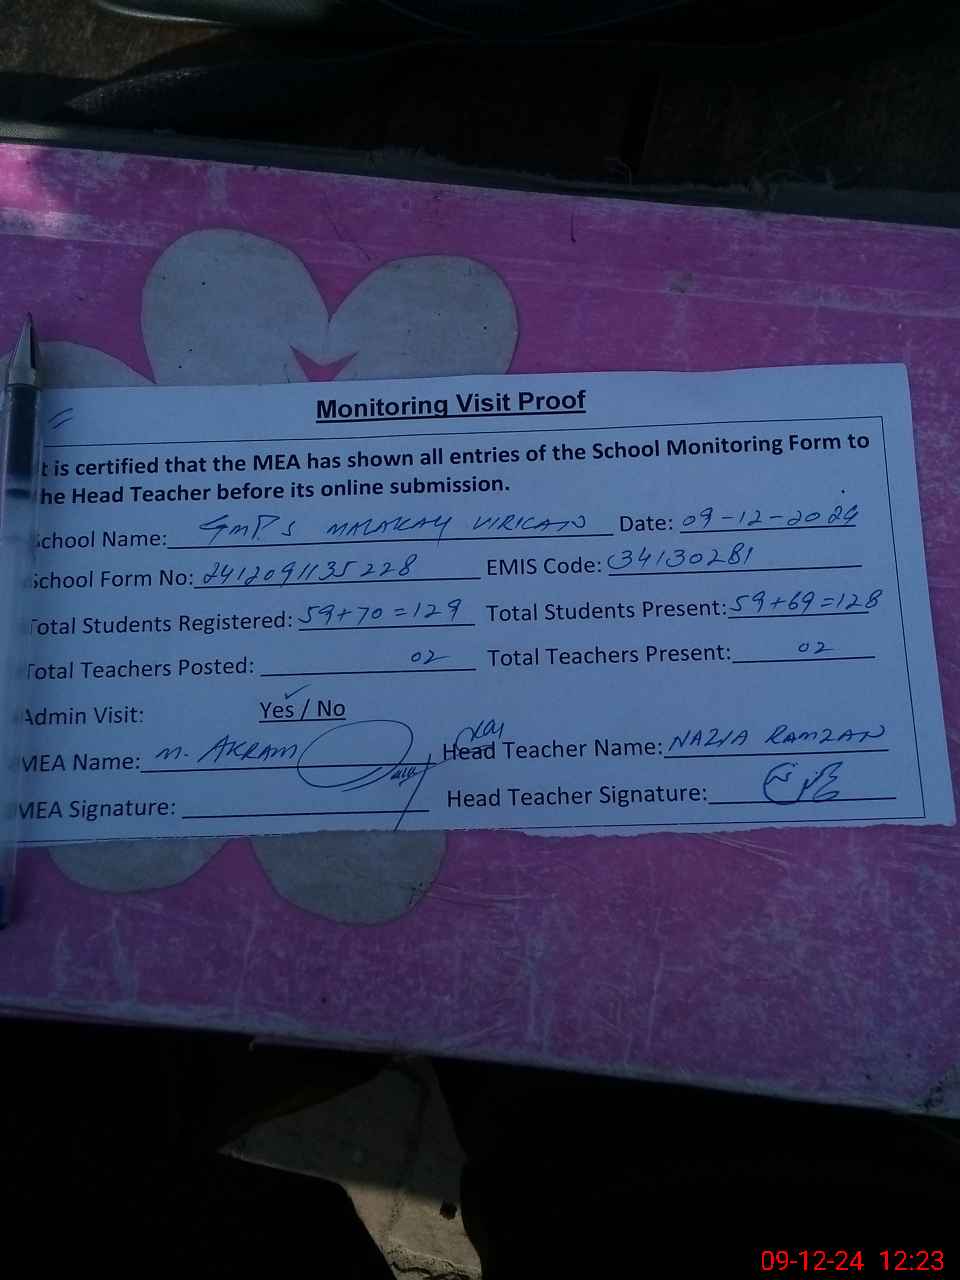 Monitoring Visit Proof
t is certified that the MEA has shown all entries of the School Monitoring Form to
he Head Teacher before its online submission.
chool Name: GMPS MALAKAY VIRICAN Date: 09-12-2024
School Form No: 2412091135228 EMIS Code: 34130281
Total Students Registered: 59+70=129 Total Students Present: 59+69=128
Total Teachers Posted: 02 Total Teachers Present: 02
Admin Visit: Yes / No
MEA Name: M. AKRAM Head Teacher Name: NAZIA RAMZAN
MEA Signature: Head Teacher Signature:
09-12-24 12:23